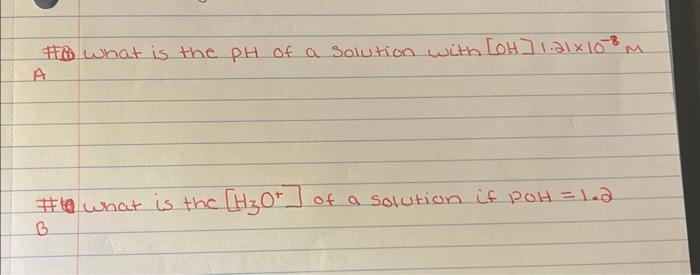 # what is the pH of a solution with [OH] 1.21x10⁻⁸ M
A
# what is the [H₃O⁺] of a solution if pOH = 1.2
B